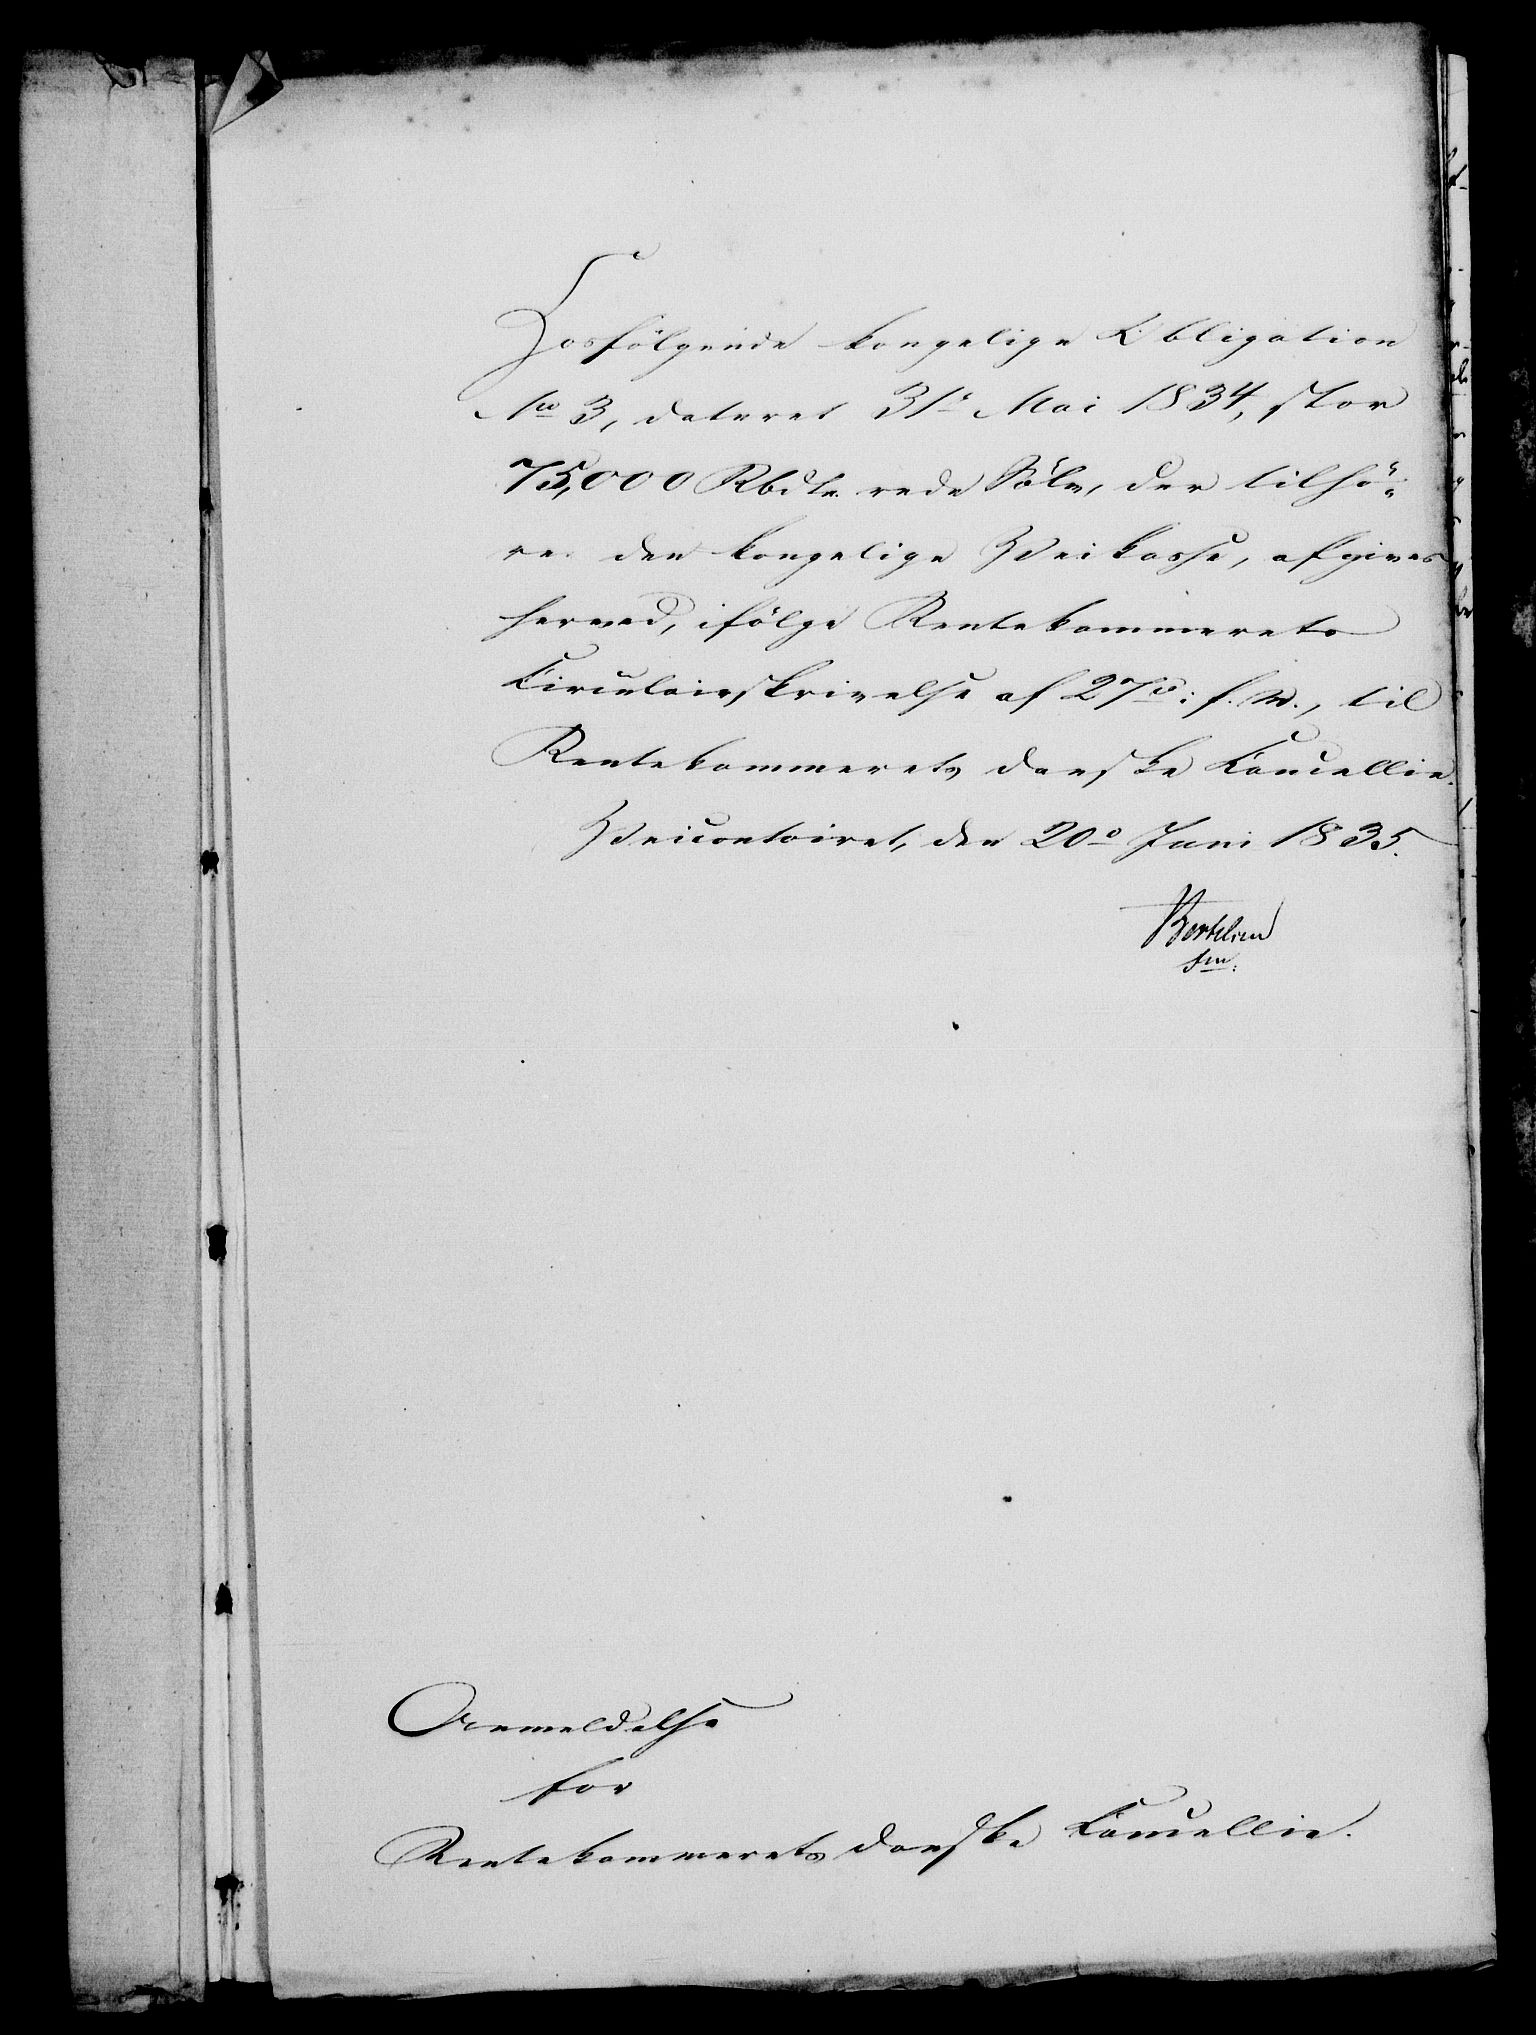 Hosfölgende kongelige Obligation
No 3, dateret 31te Mai 1834, stor
75,000 Rbdlr. rede Sölv, der tilhö-
rer den kongelige Veikasse, afgives
herved, ifölge Rentekammerets
Circulairskrivelse af 27de f. M., til
Rentekammerets danske Cancellie.
Veicontoiret, den 20de Juni 1835.
Bertelsen
Anmeldelse
for
Rentekammerets danske Cancellie.